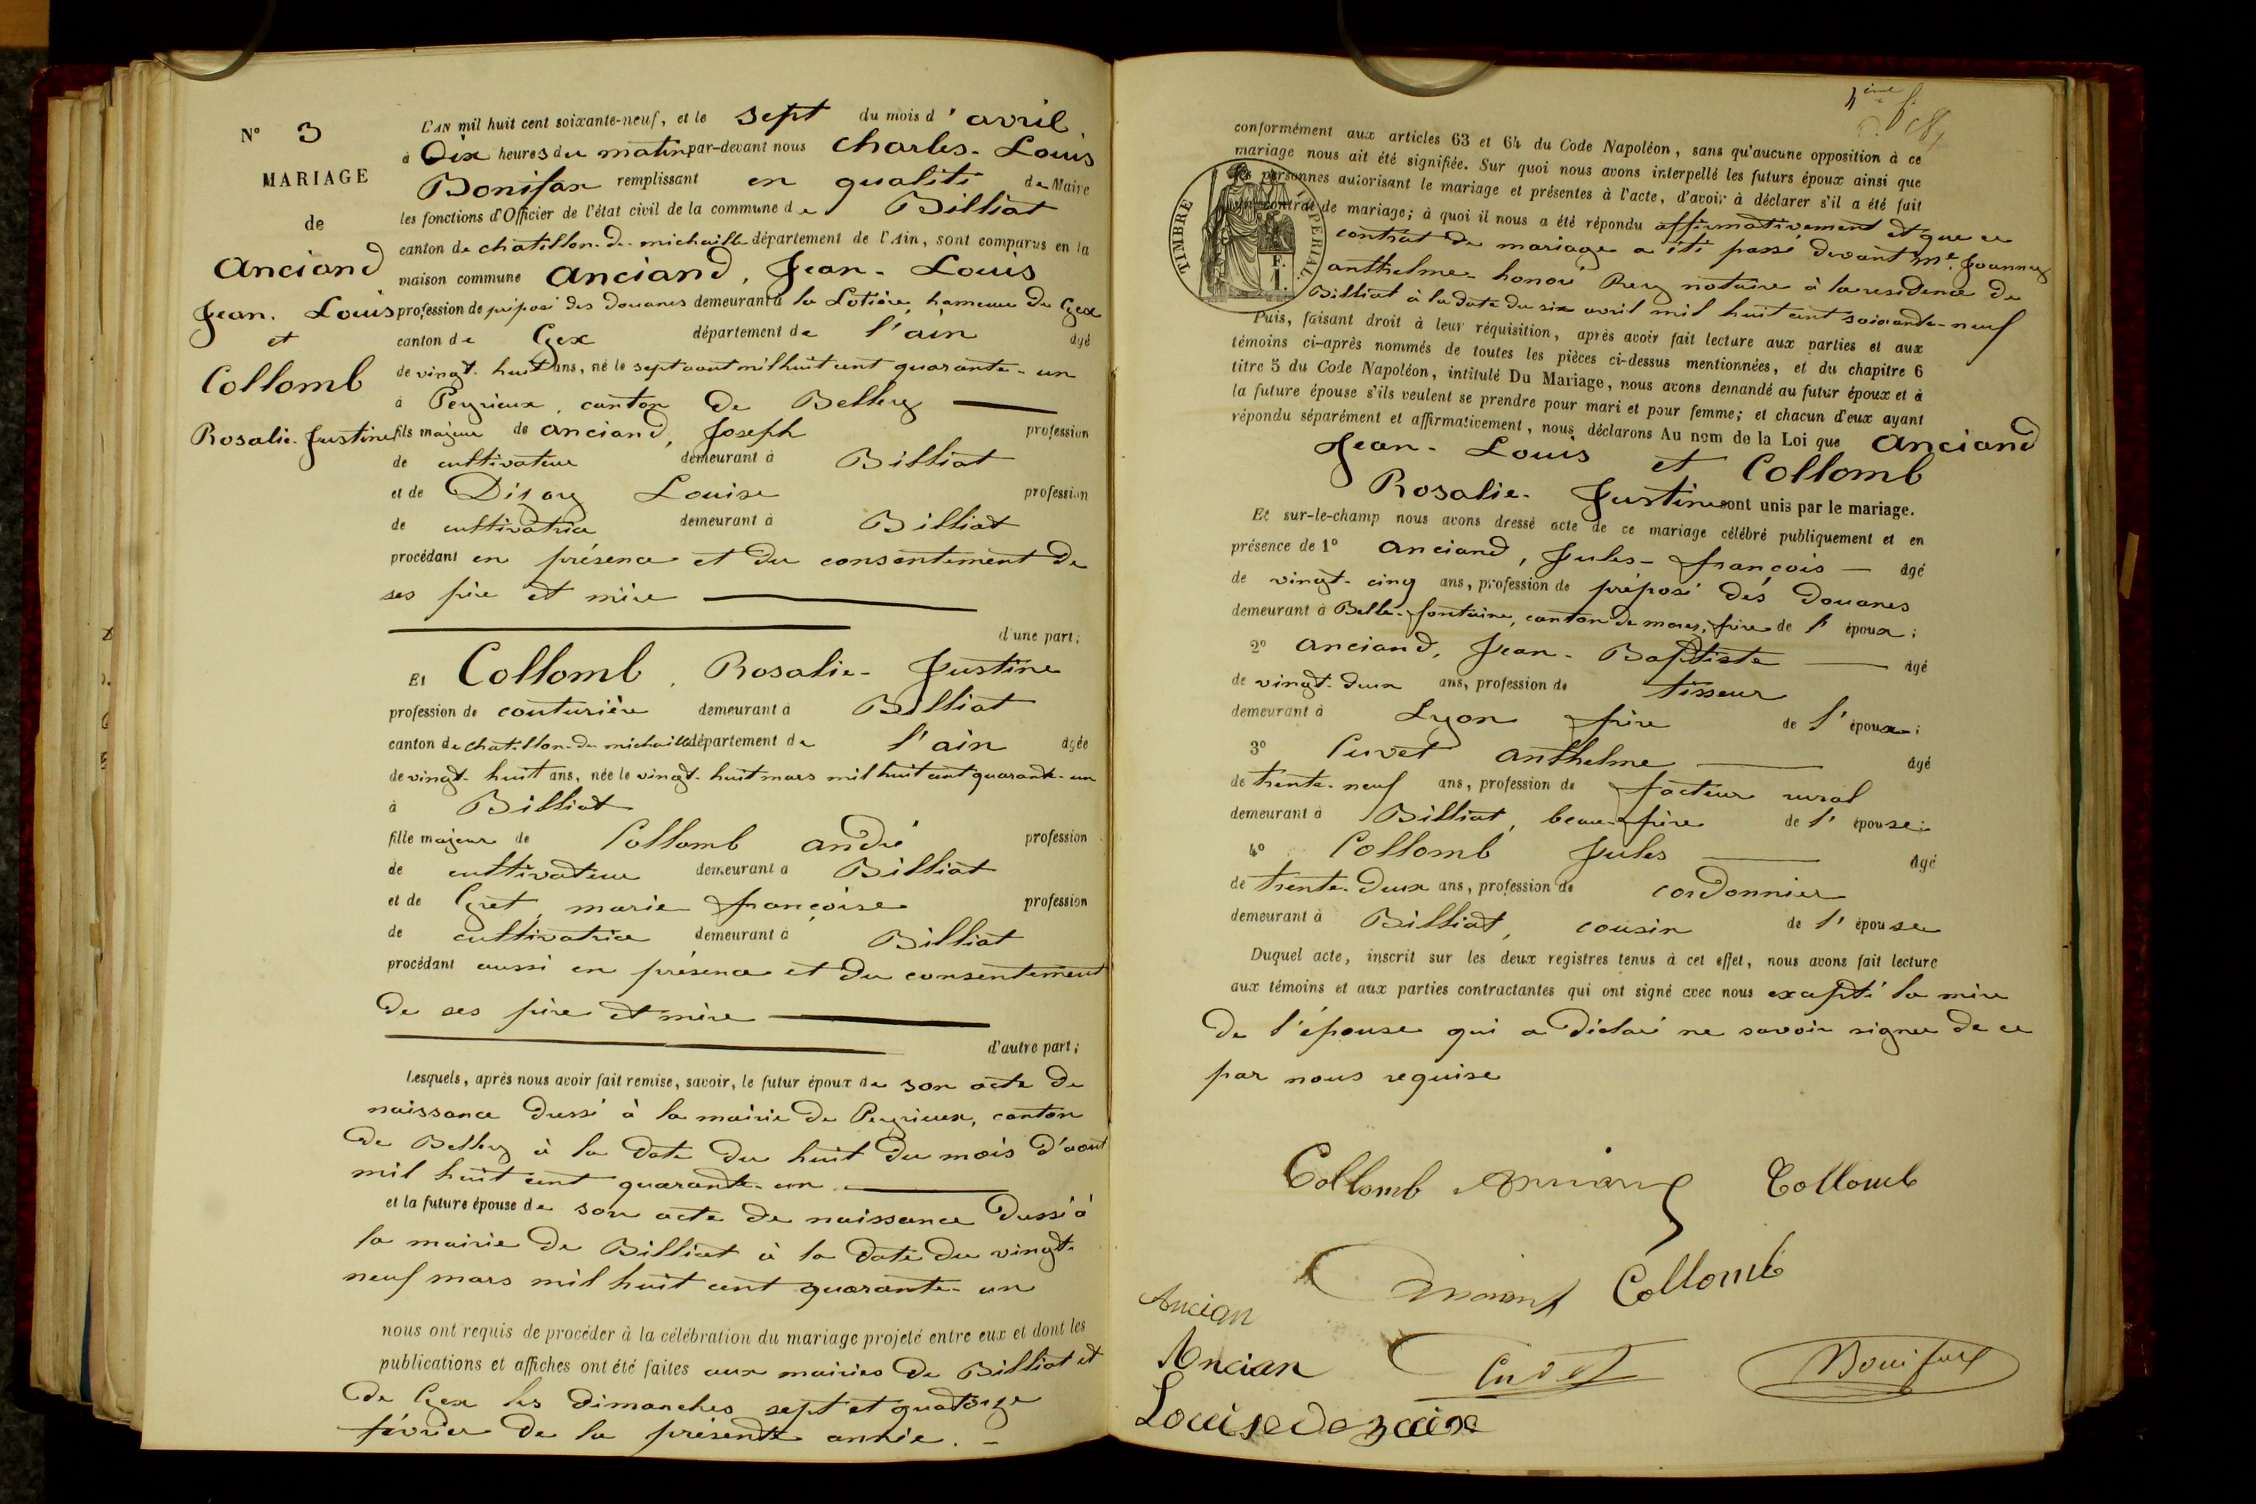 N° 3
MARIAGE
de
Anciand
Jean. Louis
et
Collomb
Rosalie. Justine
L'AN mil huit cent soixante-neuf, et le sept du mois d'avril
à Dix heures du matin par-devant nous Charles. Louis
Bonifax remplissant en qualité de Maire
les fonctions d'Officier de l'état civil de la commune de Billiat
canton de chatillon. de. michaille département de l'Ain, sont comparus en la
maison commune Anciand, Jean. Louis
profession de préposé des douanes demeurant à la Lotière, hameau de Gex
canton de Gex département de l'ain âgé
de vingt. huit ans, né le sept aout mil huit cent quarante-un
à Peyrieux, canton de Belley
fils majeur de anciand, Joseph profession
de cultivateur demeurant à Billiat
et de Louise profession
de cultivatrice demeurant à Billiat
procédant en présence et du consentement de
ses père et mère
d'une part;
Et Collomb, Rosalie. Justine
profession de couturière demeurant à Billiat
canton de chatillon. de michaille département de l'ain âgée
de vingt. huit ans, née le vingt. huit mars mil huit cent quarante. un
à Billiat
fille majeure de Collomb andré profession
de cultivateur demeurant à Billiat
et de Gret, marie françoise profession
de cultivatrice demeurant à Billiat
procédant aussi en présence et du consentement
de ses père et mère
d'autre part;
Lesquels, après nous avoir fait remise, savoir, le futur époux de son acte de
naissance dressé à la mairie de Peyrieux, canton
de Belley à la date du huit du mois d'aout
mil huit cent quarante. un
et la future épouse de son acte de naissance dressé à
la mairie de Billiat à la date du vingt.
neuf mars mil huit cent quarante. un
nous ont requis de procéder à la célébration du mariage projeté entre eux et dont les
publications et affiches ont été faites aux mairies de Billiat et
de Gex les dimanches sept et quatorze
février de la présente année.
4ème
conformément aux articles 63 et 64 du Code Napoléon, sans qu'aucune opposition à ce
mariage nous ait été signifiée. Sur quoi nous avons interpellé les futurs époux ainsi que
les personnes autorisant le mariage et présentes à l'acte, d'avoir à déclarer s'il a été fait
un contrat de mariage; à quoi il nous a été répondu affirmativement et que ce
contrat de mariage a été passé devant Me. Joannny
anthelme. honoré Rey notaire à la résidence de
Billiat à la date du six avril mil huit cent soixante-neuf
TIMBRE IMPERIAL.
1. F.
Puis, faisant droit à leur réquisition, après avoir fait lecture aux parties et aux
témoins ci-après nommés de toutes les pièces ci-dessus mentionnées, et du chapitre 6
titre 5 du Code Napoléon, intitulé Du Mariage, nous avons demandé au futur époux et à
la future épouse s'ils veulent se prendre pour mari et pour femme; et chacun d'eux ayant
répondu séparément et affirmativement, nous déclarons Au nom de la Loi que Anciand
Jean. Louis et Collomb
Rosalie. Justine sont unis par le mariage.
Et sur-le-champ nous avons dressé acte de ce mariage célébré publiquement et en
présence de 1° Anciand, Jules. françois âgé
de vingt. cinq ans, profession de préposé des douanes
demeurant à Belle. fontaine, canton de morez, frère de l'époux;
2° Anciand, Jean. Baptiste âgé
de vingt. deux ans, profession de tisseur
demeurant à Lyon frère de l'époux;
3° Cuvet anthelme âgé
de trente. neuf ans, profession de facteur rural
demeurant à Billiat, beau. frère de l'épouse;
4° Collomb Jules âgé
de trente. deux ans, profession de cordonnier
demeurant à Billiat, cousin de l'épouse
Duquel acte, inscrit sur les deux registres tenus à cet effet, nous avons fait lecture
aux témoins et aux parties contractantes qui ont signé avec nous excepté la mère
de l'épouse qui a déclaré ne savoir signer de ce
par nous requise
Collomb Anciand Collomb
Anciand Collomb
Ancian
Ancian Cuvet Bonifax
Louise